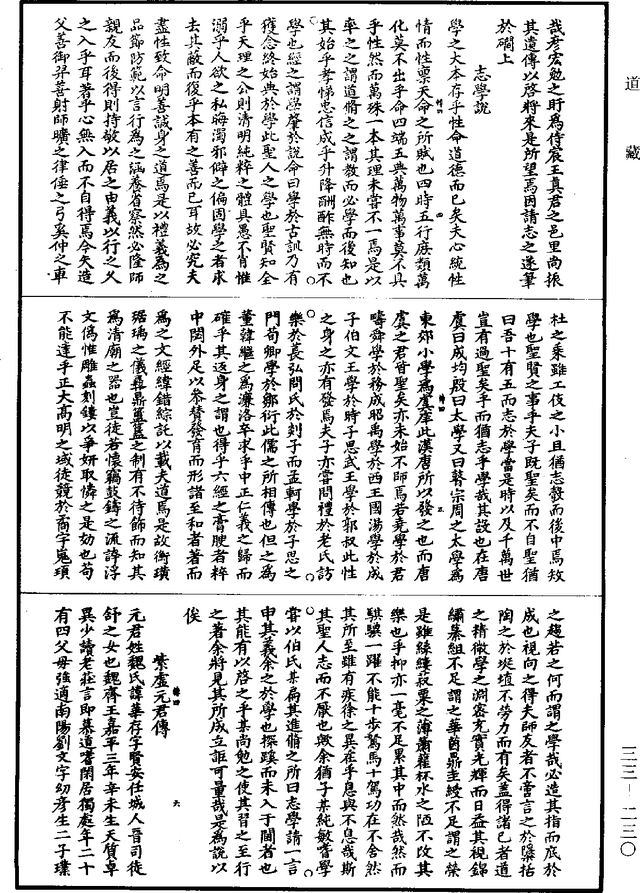 道藏
哉彥宏勉之旴爲侍宸王真君之邑里尚振
其遺傳以啓將來是所望焉因請志之遂筆
於礀上
志學說
學之大本存乎性命道德而已矣夫心統性
情而性稟天命之所賦也四時五行庶類萬
化莫不出乎命四端五典萬物萬事莫不具
乎性然而萬殊一本其理未嘗不一焉是以
率之之謂道脩之之謂教而必學而後知也
其始乎孝悌忠信成乎升降酬酢無時而不
學也經之謂學肇於說命曰學於古訓乃有
獲念終始典於學此聖人之學也聖賢知全
乎天理之公則清明純粹之體具愚不肖惟
溺乎人欲之私晦濁邪僻之偏固學之者求
去其蔽而復乎本有之善而已耳故必究夫
盡性致命明善誠身之道焉是以禮義爲之
品節防範以言行爲之涵養省察然必隆師
親友而後得則持敬以居之由義以行之久
之入乎耳著乎心無入而不自得焉今夫造
父善御羿善射師曠之律倕之弓奚仲之車
杜之乘雖工伎之小且猶志彀而後中焉矧
學也聖賢之事乎夫子旣聖矣而不自聖猶
曰吾十有五而志於學當是時以及千萬世
豈有過聖矣乎而猶志乎學哉其設也在唐
虞曰成均殷曰太學又曰瞽宗周之太學爲
東郊小學爲虞庠此漢唐所以發之也而唐
虞之君皆聖矣亦未始不師焉若堯學於君
疇舜學於務成昭禹學於西王國湯學於成
子伯文王學於時子思武王學於郭叔此性
之身之亦有發焉夫子亦嘗問禮於老氏訪
樂於萇弘問氏於剡子而孟軻學於子思之
門荀卿學於鄒衍此儒之所相傳也但之爲
董韓繼之爲濂洛卒求乎中正仁義之歸而
確乎其返身之謂也得乎六經之膏腴者粹
中閎外足以參贊發育而形諸至和者著而
爲之文經緯錯綜託以載夫道焉是故衡璜
琚瑀之儀彞鼎簠簋之制有不待飾而知其
爲清廟之器也豈徒若懷竊鼓鑄之流譁浮
文僞惟雕蟲刻鏤以爭妍取憐之是効也苟
不能達乎正大高明之域徒競於裔宇嵬瑣
之趨若之何而謂之學哉必造其指而底於
成也視向之得夫師友者不啻言之於隱栝
陶之於埏埴不勞力而有矣蓋得諸已者道
之精微學之淵密充實光輝而日益其視錦
繡纂組不足謂之華茵鼎圭綬不足謂之榮
是雖絲縷寂粟之薄蕭藋杯水之陋不改其
樂也乎抑亦一毫不足累其中而然哉然而
騏驥一躍不能十步駑馬十駕功在不舍然
其所至雖有疾徐之異在乎息與不息哉斯
其聖人志而不厭也歟余猶子某純敏耆學
嘗以伯氏某扁其進脩之所曰志學請一言
申其義余之於學也探蹊而未入于閫者也
其能有以啓之乎某尚勉之使其習之至行
之著余將見其所成立詎可量哉是爲說以
俟
紫虛元君傳
元君姓魏氏諱華存子賢安任城人晉司徒
舒之女也魏齊王嘉平三年辛未生天質卓
異少讀老莊言即慕道嘗閑居獨處年二十
有四父母強適南陽劉文字幼彥生二子璞
三三–二三〇